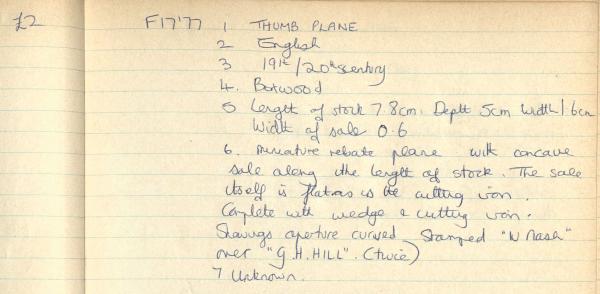 £2 F17'77 1 THUMB PLANE
2 English
3 19th/20th century
4. Boxwood
5 Length of stock 7.8cm. Depth 5cm Width 1.6cm
Width of sole 0.6
6. Miniature rebate plane with concave
sole along the length of stock. The sole
itself is flat as is the cutting iron.
Complete with wedge & cutting iron.
Shavings aperture curved Stamped "W Nash"
over "G.H.HILL". (twice)
7 Unknown.